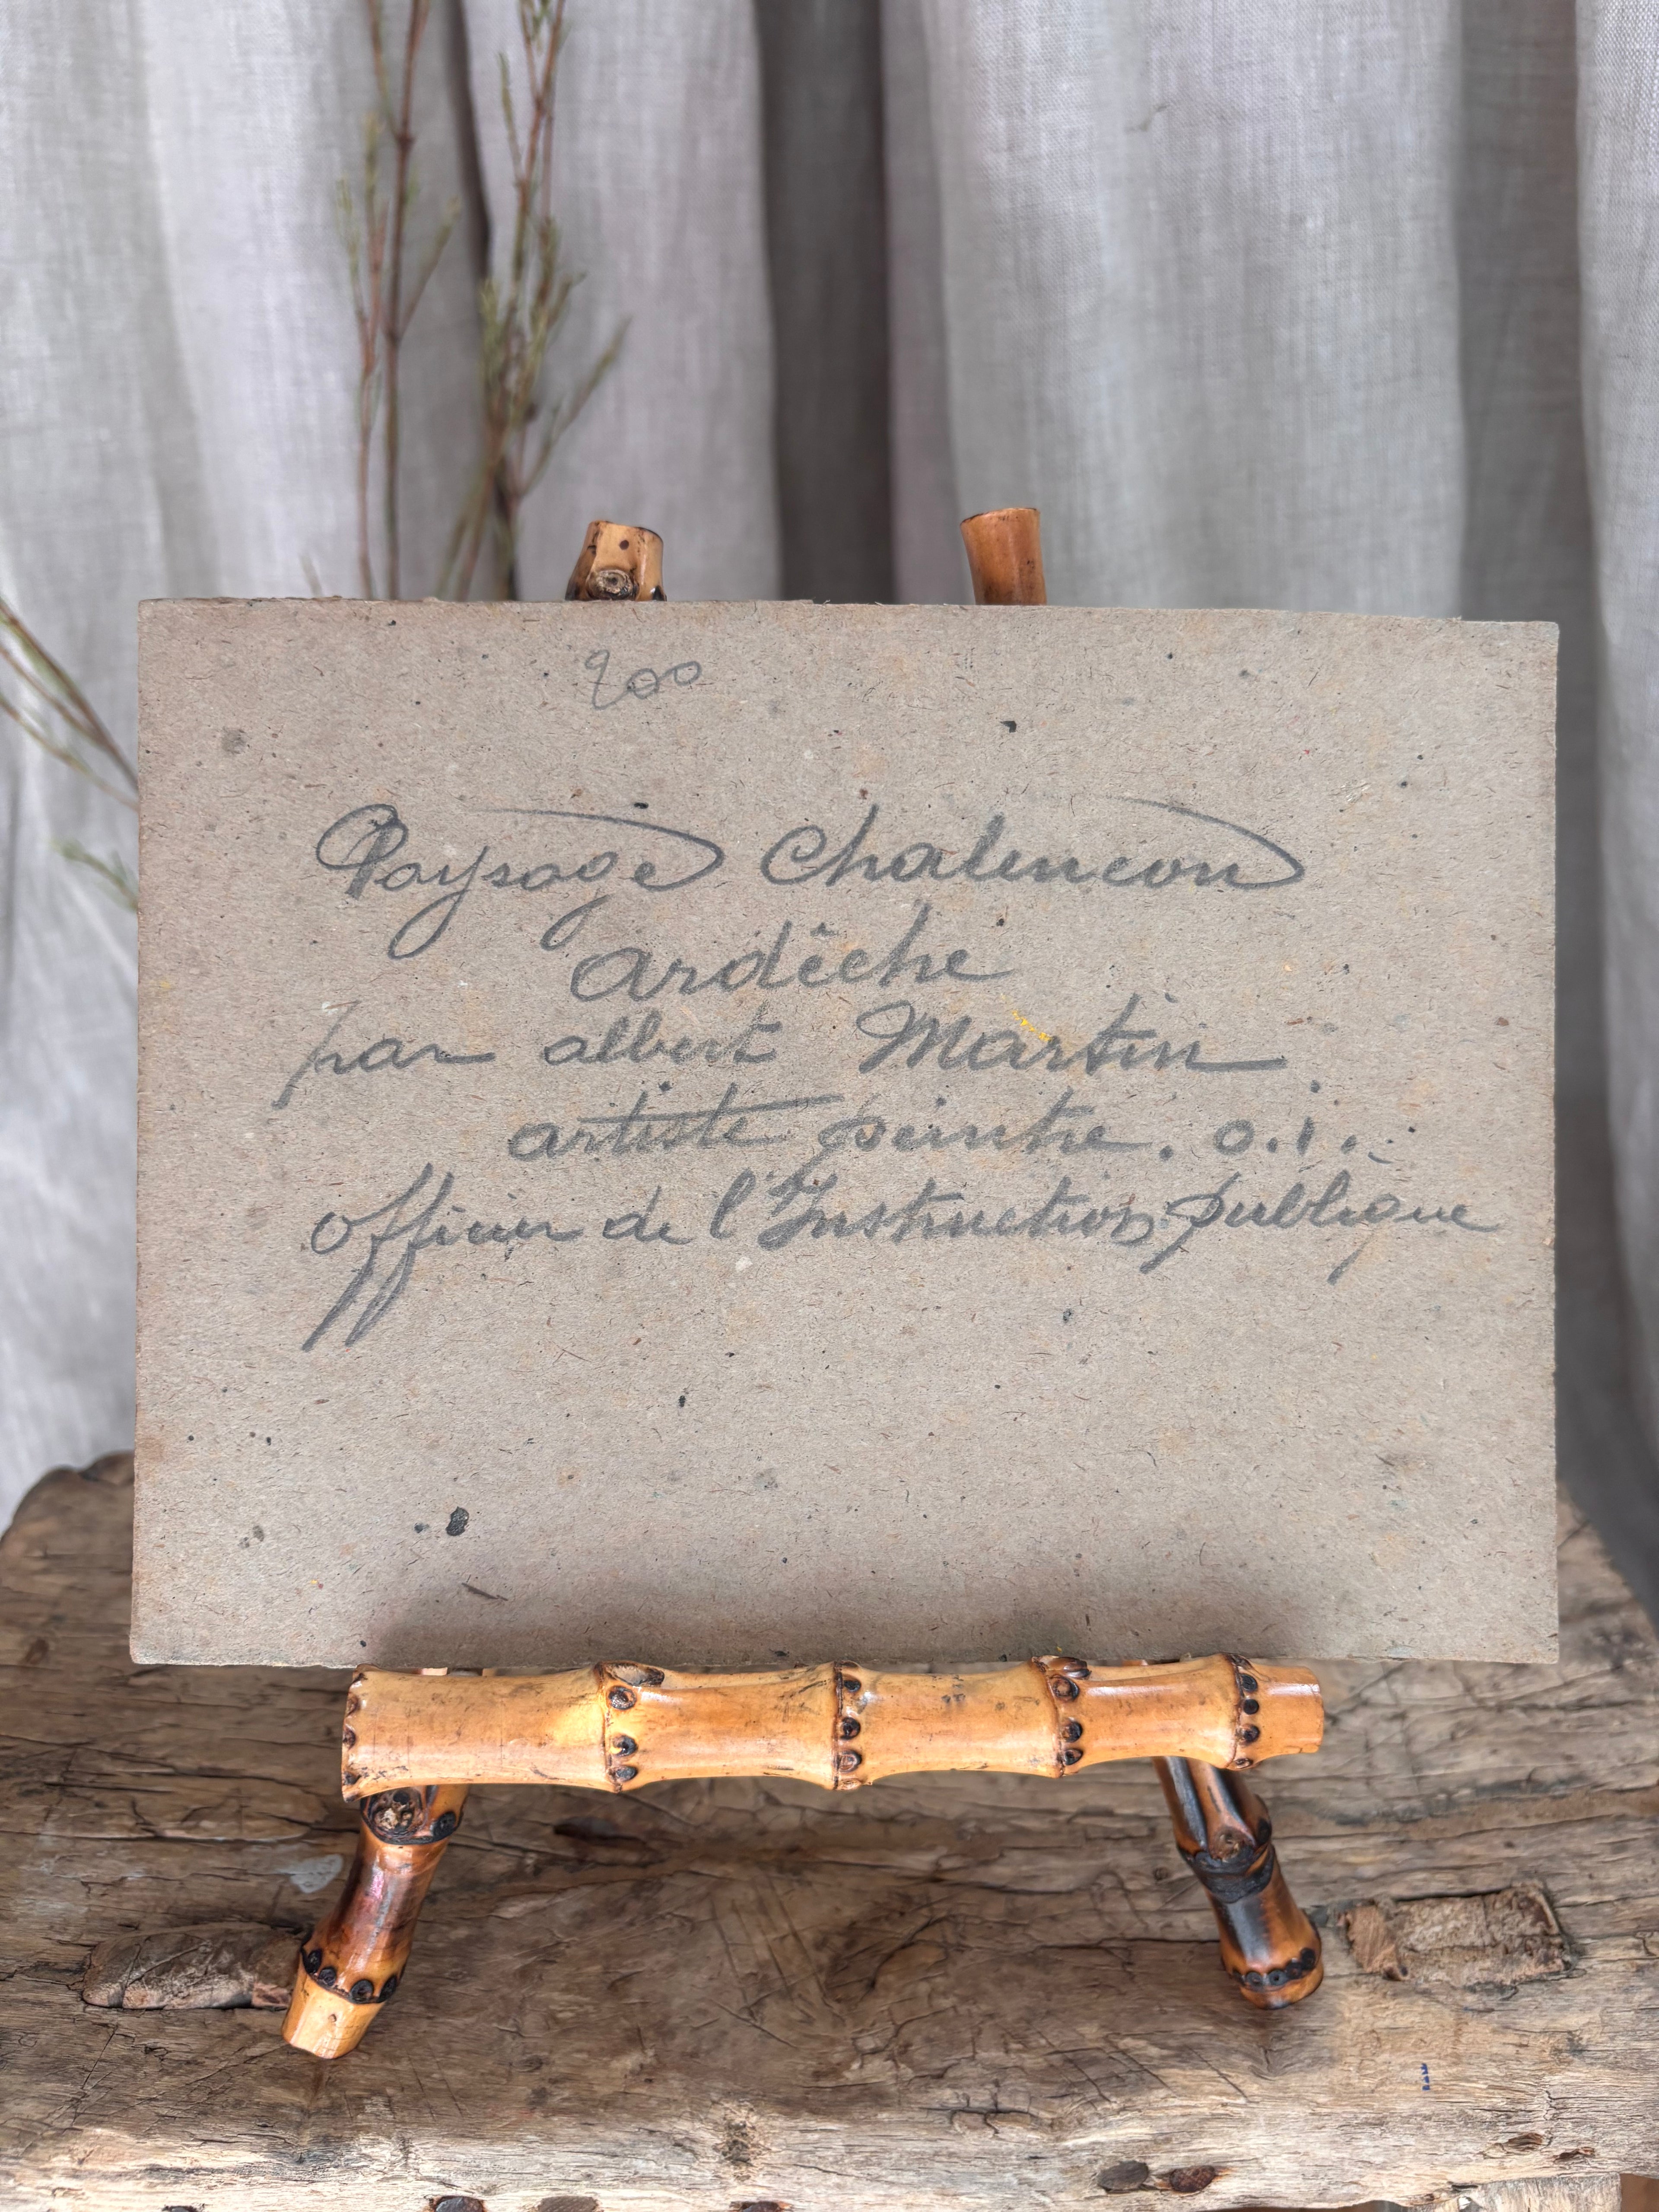 200
Paysage Chalencon
ardèche
par albert Martin
artiste peintre. o.i.
officier de l'Instruction publique